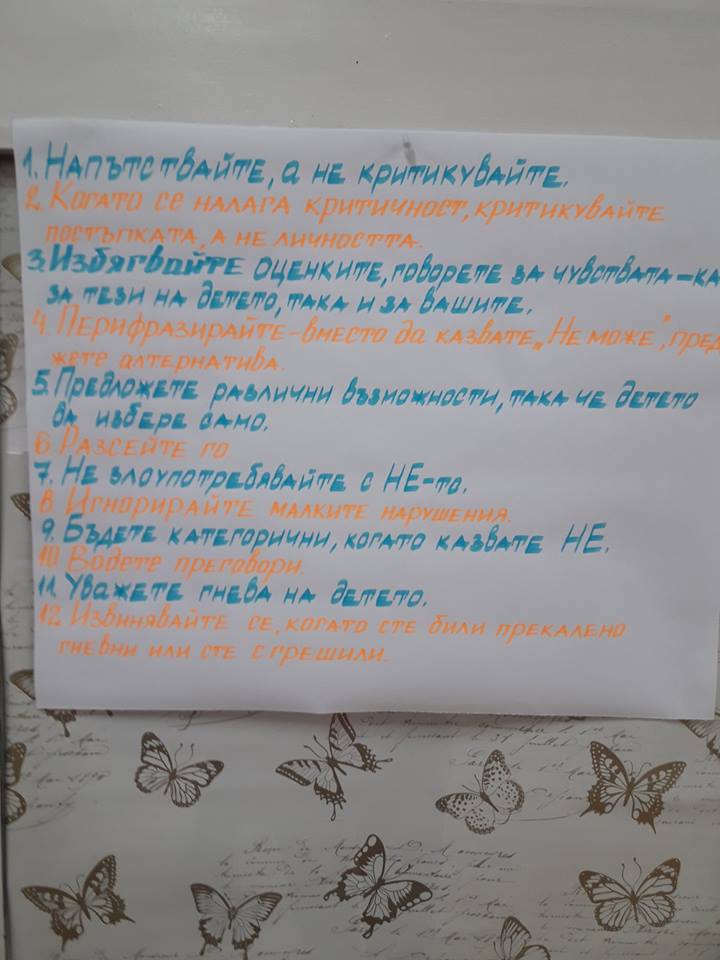 1. Напътствайте, а не критикувайте.
2. Когато се налага критичност, критикувайте
постъпката, а не личността.
3. Избягвайте оценките, говорете за чувствата – ка
за тези на детето, така и за вашите.
4. Перифразирайте – вместо да казвате „Не може", пред
жете алтернатива.
5. Предложете различни възможности, така че детето
да избере само.
6. Разсейте го
7. Не злоупотребявайте с НЕ-то.
8. Игнорирайте малките нарушения.
9. Бъдете категорични, когато казвате НЕ.
10. Водете преговори.
11. Уважете гнева на детето.
12. Извинявайте се, когато сте били прекалено
гневни или сте сгрешили.